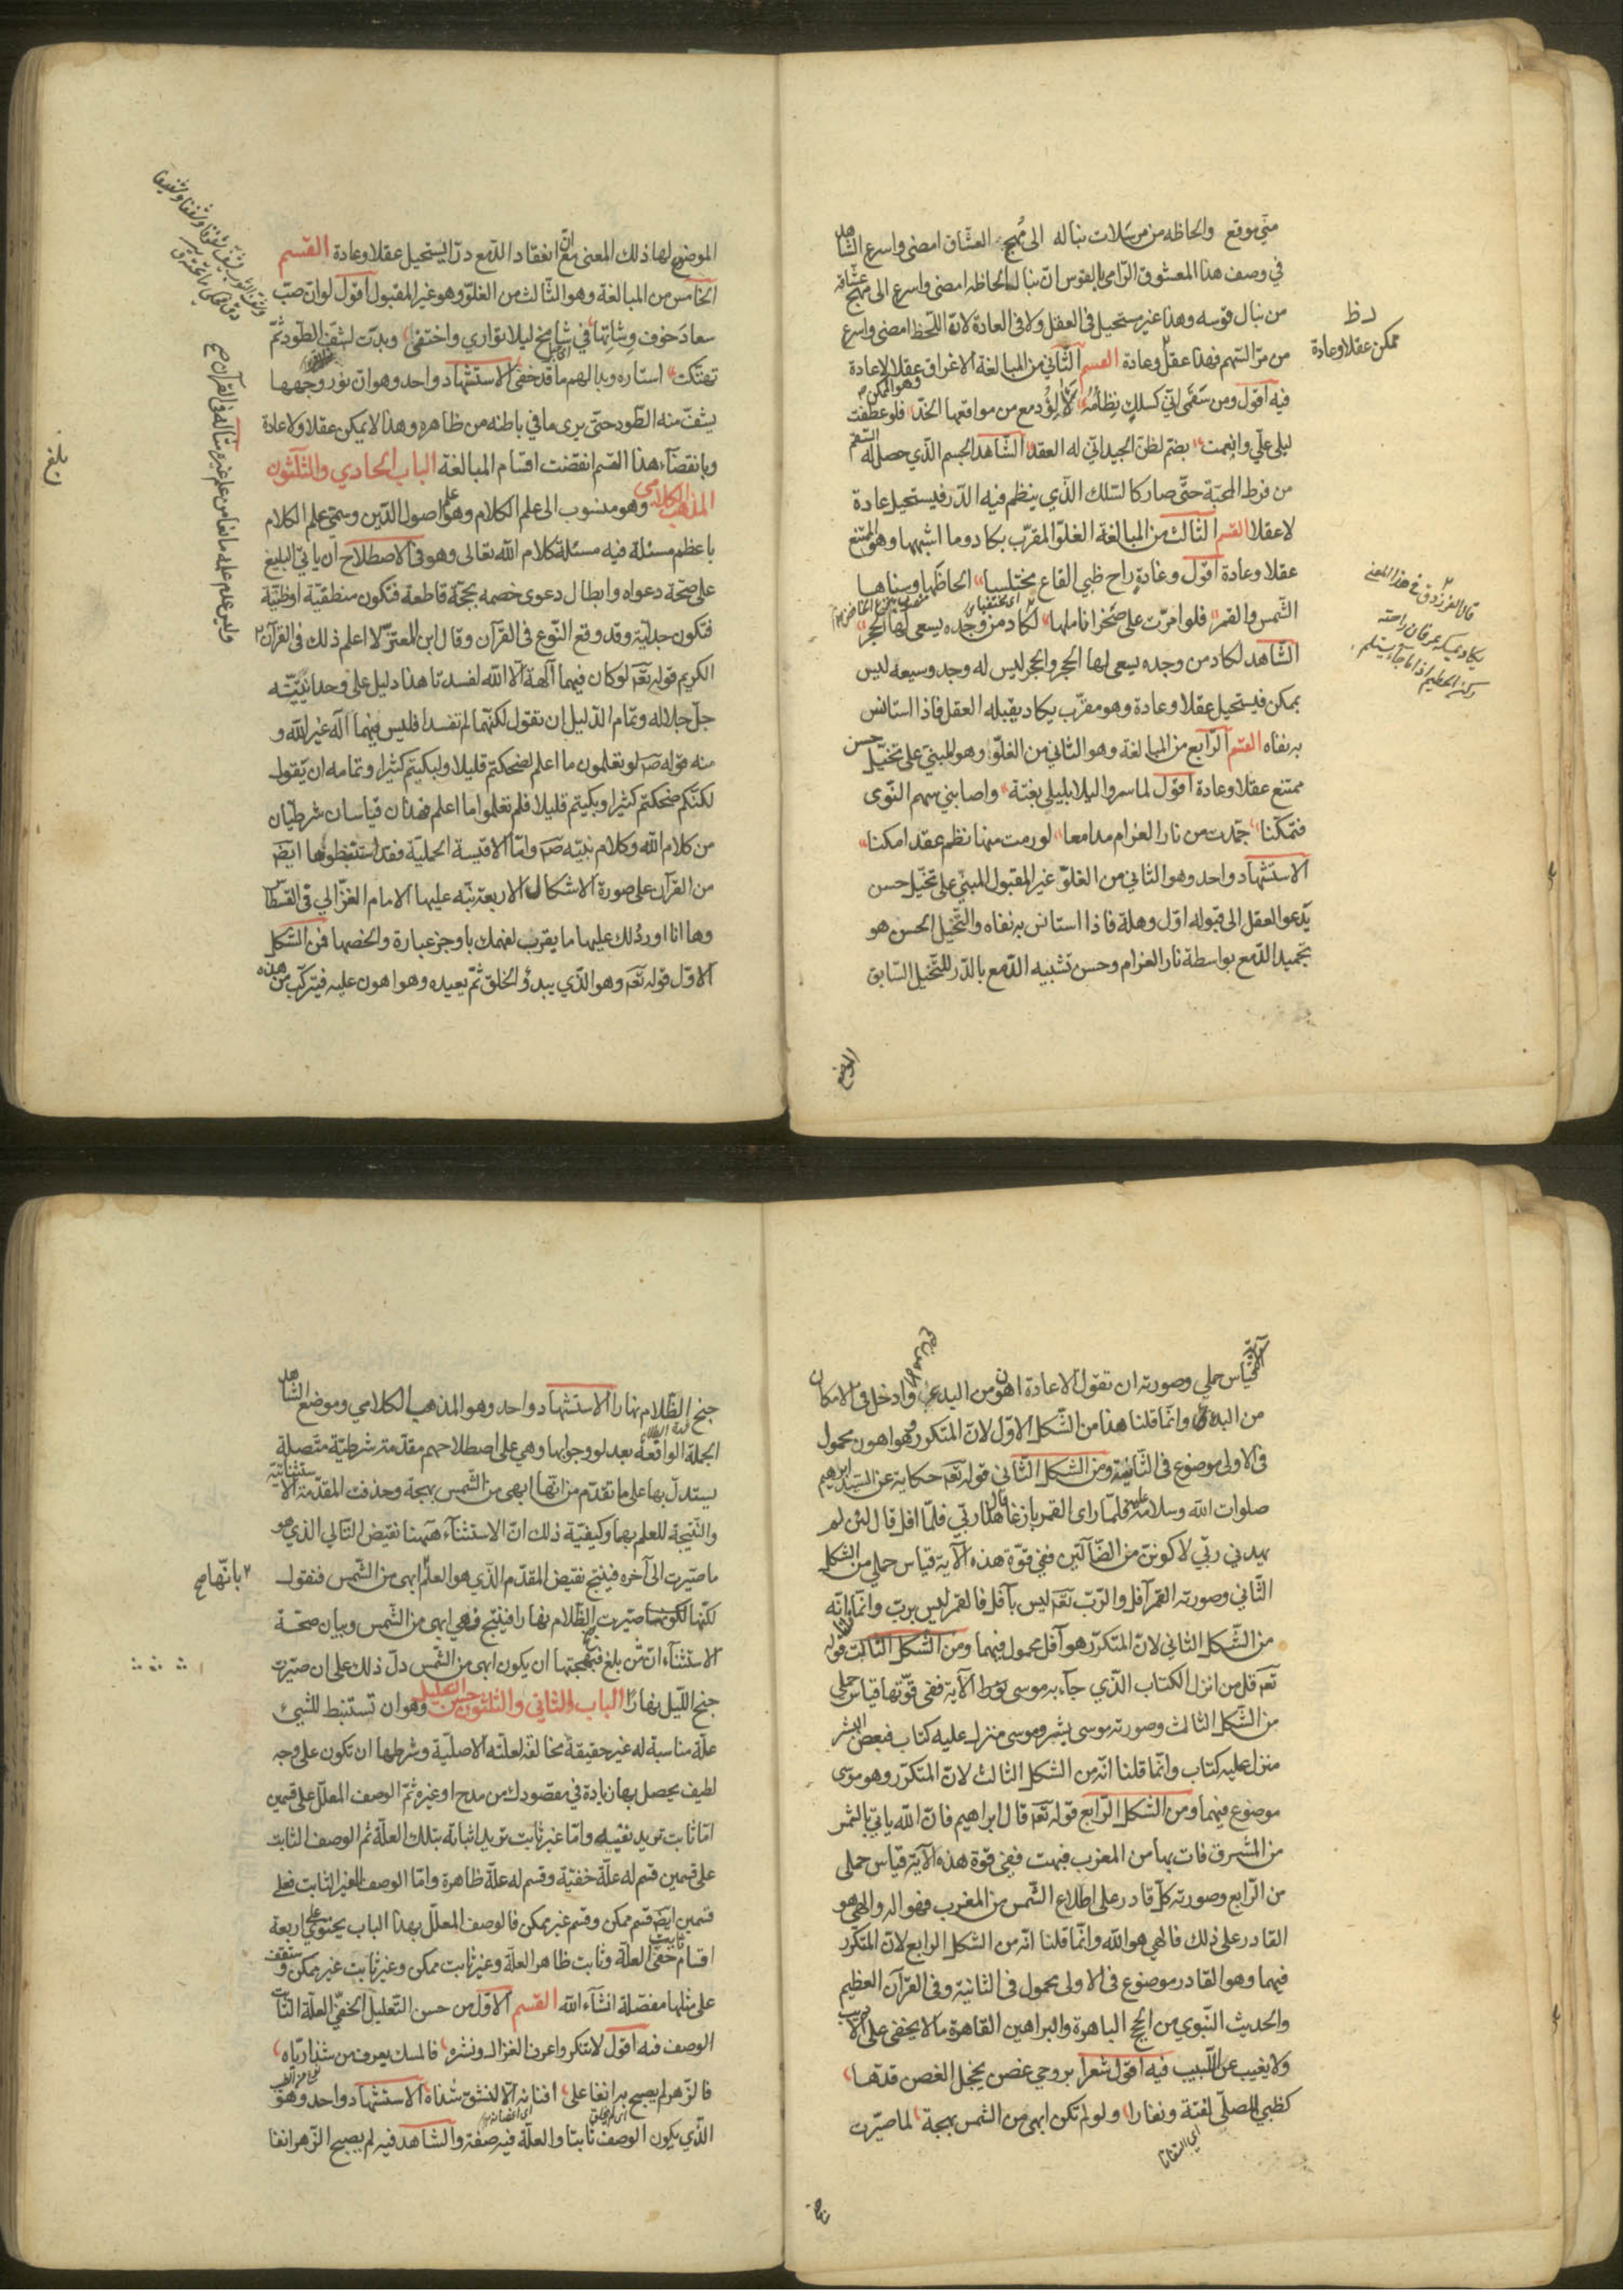 منّي موقع والحاظه من مرسلات نباله الى مهج العشاق امضى واسرع الشاهد
في وصف هذا المعشوق الرّامي بالقوس انّ نبال الحاظه امضى واسرع الى مهج عشاقه
من نبال قوسه وهذا غير مستحيل في العقل ولا في العادة لانّ اللّحظ امضى واسرع
من مرّ السّهم فهذا عقلا وعادة القسم الثّاني من المبالغة الاغراق عقلا لا عادة
وهو الممكن
فيه اقول ومن سقمي انّي كسلك نظامه لآلئ دمع من مواقعها الخدّ فلو عطفت
ليلى عليّ وانعمت بضمّ لظنّ الجيد انّي له العقد الشّاهد الجسم الّذي حصل له السّقم
من فرط المحبّة حتّى صار كالسّلك الّذي ينظم فيه الدّر فيستحيل عادة
لا عقلا القسم الثّالث من المبالغة الغلوّ المقرّب بكاد وما اشبهها وهو الممتنع
عقلا وعادة اقول وغادة راح ظبي القاع مختلسا الحاظها وسناها
الشّمس والقمر فلو امرّت على صخر اناملها لكاد من وجده يسعى لها الحجر
الشّاهد لكاد من وجده يسعى لها الحجر والحجر ليس له وجد وسعيه ليس
بممكن فيستحيل عقلا وعادة وهو مقرّب بكاد يقبله العقل فاذا استانس
به نفاه القسم الرّابع من المبالغة وهو الثاني من الغلوّ وهو المبنيّ على تخيّل حسن
ممتنع عقلا وعادة اقول لما سروا ليلا بليلى بغتة واصابني سهم النّوى
فتمكّنا جمدت من نار الغرام مدامعا لو رمت منها نظم عقد امكنا
الاستشهاد واحد وهو الثاني من الغلوّ غير المقبول المبنيّ على تخيّل حسن
يدعو العقل الى قبوله اوّل وهلة فاذا استانس به نفاه والتّخيّل الحسن هو
تجميد الدّمع بواسطة نار الغرام وحسن تشبيه الدّمع بالدّر للتّخيّل السّابق
الموضع
ممكن عقلا وعادة
قال الفرزدق في هذا المعنى
يكاد يمسكه عرفان راحته
ركن الحطيم اذا ما جاء يستلم
الموضع لها ذلك المعنى مع انّ انعقاد الدّمع درّا يستحيل عقلا وعادة القسم
الخامس من المبالغة وهو الثّالث من الغلوّ وهو غير المقبول اقول لو انّ صبّ
سعاد خوف وشاتها في شامخ ليلا توارى واختفى وبدت لشفّ الطّود ثمّ
تهتّكت استاره وبدا لهم ما قد خفي الاستشهاد واحد وهو انّ نور وجهها
يشفّ منه الطّود حتّى يرى ما في باطنه من ظاهره وهذا لا يمكن عقلا ولا عادة
وبانقضآء هذا القسم انقضت اقسام المبالغة الباب الحادي والثّلثون
المذهب الكلامي وهو منسوب الى علم الكلام وهو علم اصول الدّين وسمّي علم الكلام
باعظم مسئلة فيه مسئلة كلام الله تعالى وهو في الاصطلاح ان ياتي البليغ
على صحّة دعواه وابطال دعوى خصمه بحجّة قاطعة فتكون منطقيّة او ظنّيّة
فتكون جدليّة وقد وقع النّوع في القرآن وقال ابن المعتزّ لا اعلم ذلك في القرآن
الكريم قوله تع لو كان فيهما آلهة الّا الله لفسدتا هذا دليل على وحدانيّته
جلّ جلاله وتمام الدّليل ان تقول لكنّهما لم تفسدا فليس فيهما اله غير الله و
منه قوله ص لو تعلمون ما اعلم لضحكتم قليلا ولبكيتم كثيرا وتمامه ان يقول
لكنّكم ضحكتم كثيرا وبكيتم قليلا فلم تعلموا ما اعلم فهذان قياسان شرطيان
من كلام الله وكلام نبيّه ص وامّا الاقيسة الحمليّة فقد استنبطوها ايض
من القرآن على صورة الاشكال الاربعة نبّه عليها الامام الغزّالي في القسطاس
وها انا اورد لك عليها ما يقرب لفهمك باوجز عبارة والخصها فمن الشّكل
الاوّل قوله تع وهو الّذي يبدؤ الخلق ثمّ يعيده وهو اهون عليه فيتركّب من هذه
بلغ
الآية قياس حملي وصورته ان تقول الاعادة اهون من البدء وادخل في الامكان
من البدء وانّما قلنا هذا من الشّكل الاوّل لانّ المتكرر وهو اهون محمول
في الاولى موضوع في الثّانية ومن الشّكل الثّاني قوله تع حكاية عن السّيد ابرهيم
صلوات الله وسلامه عليه فلمّا راى القمر بازغا قال هذا ربّي فلمّا افل قال لئن لم
يهدني ربّي لاكوننّ من الضّآلّين ففي قوّة هذه الآية قياس حملي من الشكل
الثّاني وصورته القمر آفل والرّب تع ليس بآفل فالقمر ليس بربّ وانّما قلنا انّه
من الشّكل الثاني لانّ المتكرّر هو آفل محمول فيهما ومن الشّكل الثّالث قوله
تع قل من انزل الكتاب الّذي جآء به موسى نورا الآية ففي قوّتها قياس حملي
من الشّكل الثالث وصورته موسى بشر وموسى منزل عليه كتاب فبعض البشر
منزل عليه كتاب وانّما قلنا انّه من الشكل الثالث لانّ المتكرّر وهو موسى
موضوع فيهما ومن الشّكل الرّابع قوله تع قال ابراهيم فانّ الله ياتي بالشّمس
من المشرق فات بها من المغرب فبهت ففي قوة هذه الآية قياس حملى
من الرّابع وصورته كلّ قادر على اطلاع الشّمس من المغرب فهو اله والهي هو
القادر على ذلك فالهي هو الله وانّما قلنا انّه من الشكل الرابع لانّ المتكرّر
فيهما وهو القادر موضوع في الاولى محمول في الثانية وفي القرآن العظيم
والحديث النّبوي من الحجج الباهرة والبراهين القاهرة ما لا يخفى على الاريب
ولا يغيب عن اللّبيب فيه اقول شعرا بروحي غصن يخجل الغصن قدّها
كظبي المصلّى لفتة ونفارا ولو لم تكن ابهى من الشمس بهجة لما صيّرت
اي التفاتا
جنح
جنح الظّلام نهارا الاستشهاد واحد وهو المذهب الكلامي وموضع الشّاهد
الجملة الواقعة بعد لو وجوابها وهي على اصطلاحهم مقدّمة شرطيّة متّصلة
يستدلّ بها على ما تقدّم من انّها ابهى من الشّمس بهجة وحذفت المقدّمة الاستثنائيّة
والنّتيجة للعلم بهما وكيفيّة ذلك انّ الاستثنآء ههنا نقيض التّالي الذي هو
ما صيّرت الى آخره فينتج نقيض المقدّم الّذي هو العلم ابهى من الشّمس فنقول
لكنّها صيّرت الظّلام نهارا فينتج فهي ابهى من الشّمس وبيان صحّة
الاستثنآء انّ من بلغ بهجتها ان يكون ابهى من الشّمس دلّ ذلك على ان صيّرت
جنح اللّيل نهارا الباب الثاني والثلثون حسن التعليل وهو ان تستنبط للشيئ
علّة مناسبة له غير حقيقة مخالفة لعلّته الاصليّة وشرطها ان تكون على وجه
لطيف يحصل بها زيادة في مقصودك من مدح او غيره ثمّ الوصف المعلّل على قسمين
امّا ثابت تريد نفيه وامّا غير ثابت تريد اثباته بتلك العلّة ثم الوصف الثابت
على قسمين قسم له علّة خفيّة وقسم له علّة ظاهرة وامّا الوصف الغير الثابت فعلى
قسمين ايض قسم ممكن وقسم غير ممكن فالوصف المعلّل بهذا الباب يحتوي على اربعة
اقسام ثابت خفيّ العلّة وثابت ظاهر العلّة وغير ثابت ممكن وغير ثابت غير ممكن وستقف
على مثلها مفصّلة انشآء الله القسم الاوّل من حسن التّعليل الخفيّ العلّة الثابت
الوصف فيه اقول لا تنكروا عرف الغزال ونشره فالمسك يعرف من شذا ريّاه
فالزّهر لم يصبح به انفا على افنانه الّا لنشق شذاه الاستشهاد واحد وهو
الّذي يكون الوصف ثابتا والعلّة فيه صفة والشاهد فيه لم يصبح الزّهر انفا
بانّها صح